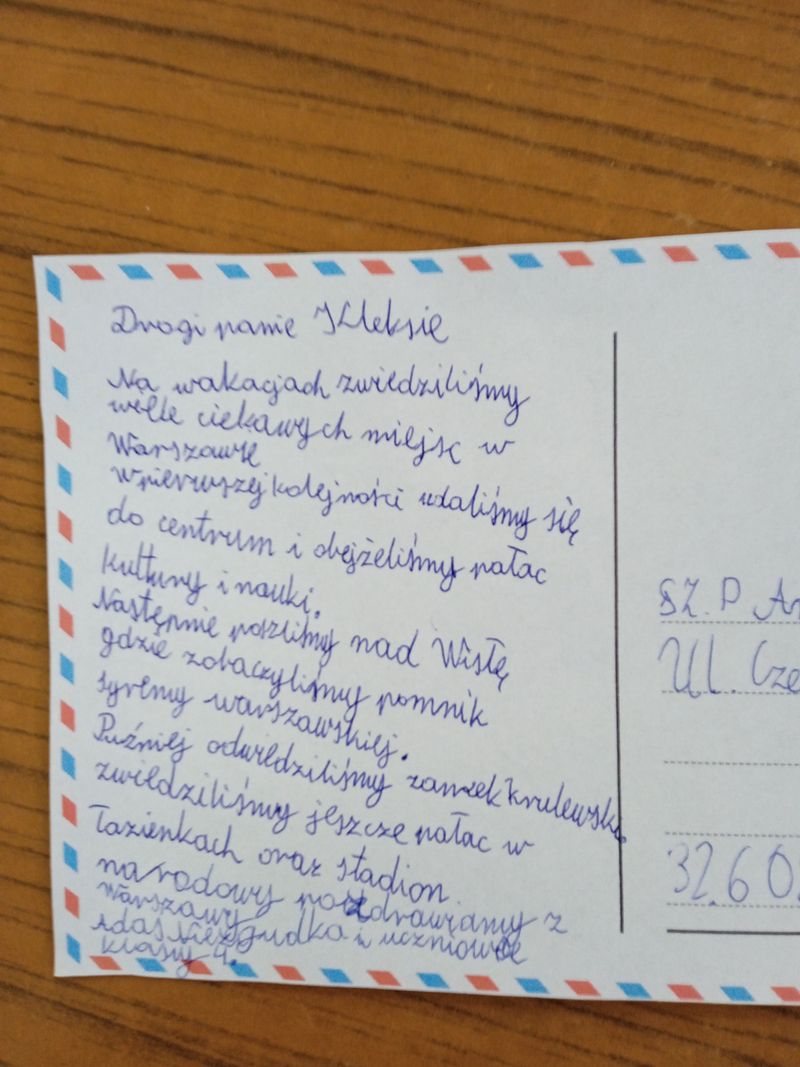 Drogi panie Kleksie
Na wakacjach zwiedziliśmy
wiele ciekawych miejsc w
Warszawie
W pierwszej kolejności udaliśmy się
do centrum i obejżeliśmy pałac
kultury i nauki.
Następnie poszliśmy nad Wisłę
gdzie zobaczyliśmy pomnik
syreny warszawskiej.
Puźniej odwiedziliśmy zamek krulewski.
zwiedziliśmy jeszcze pałac w
Łazienkach oraz stadion
narodowy pozdrawiamy z
Warszawy
Adaś Niezgudka i uczniowie
klasy 4.
SZ. P. Am
Ul. Cze
32.60